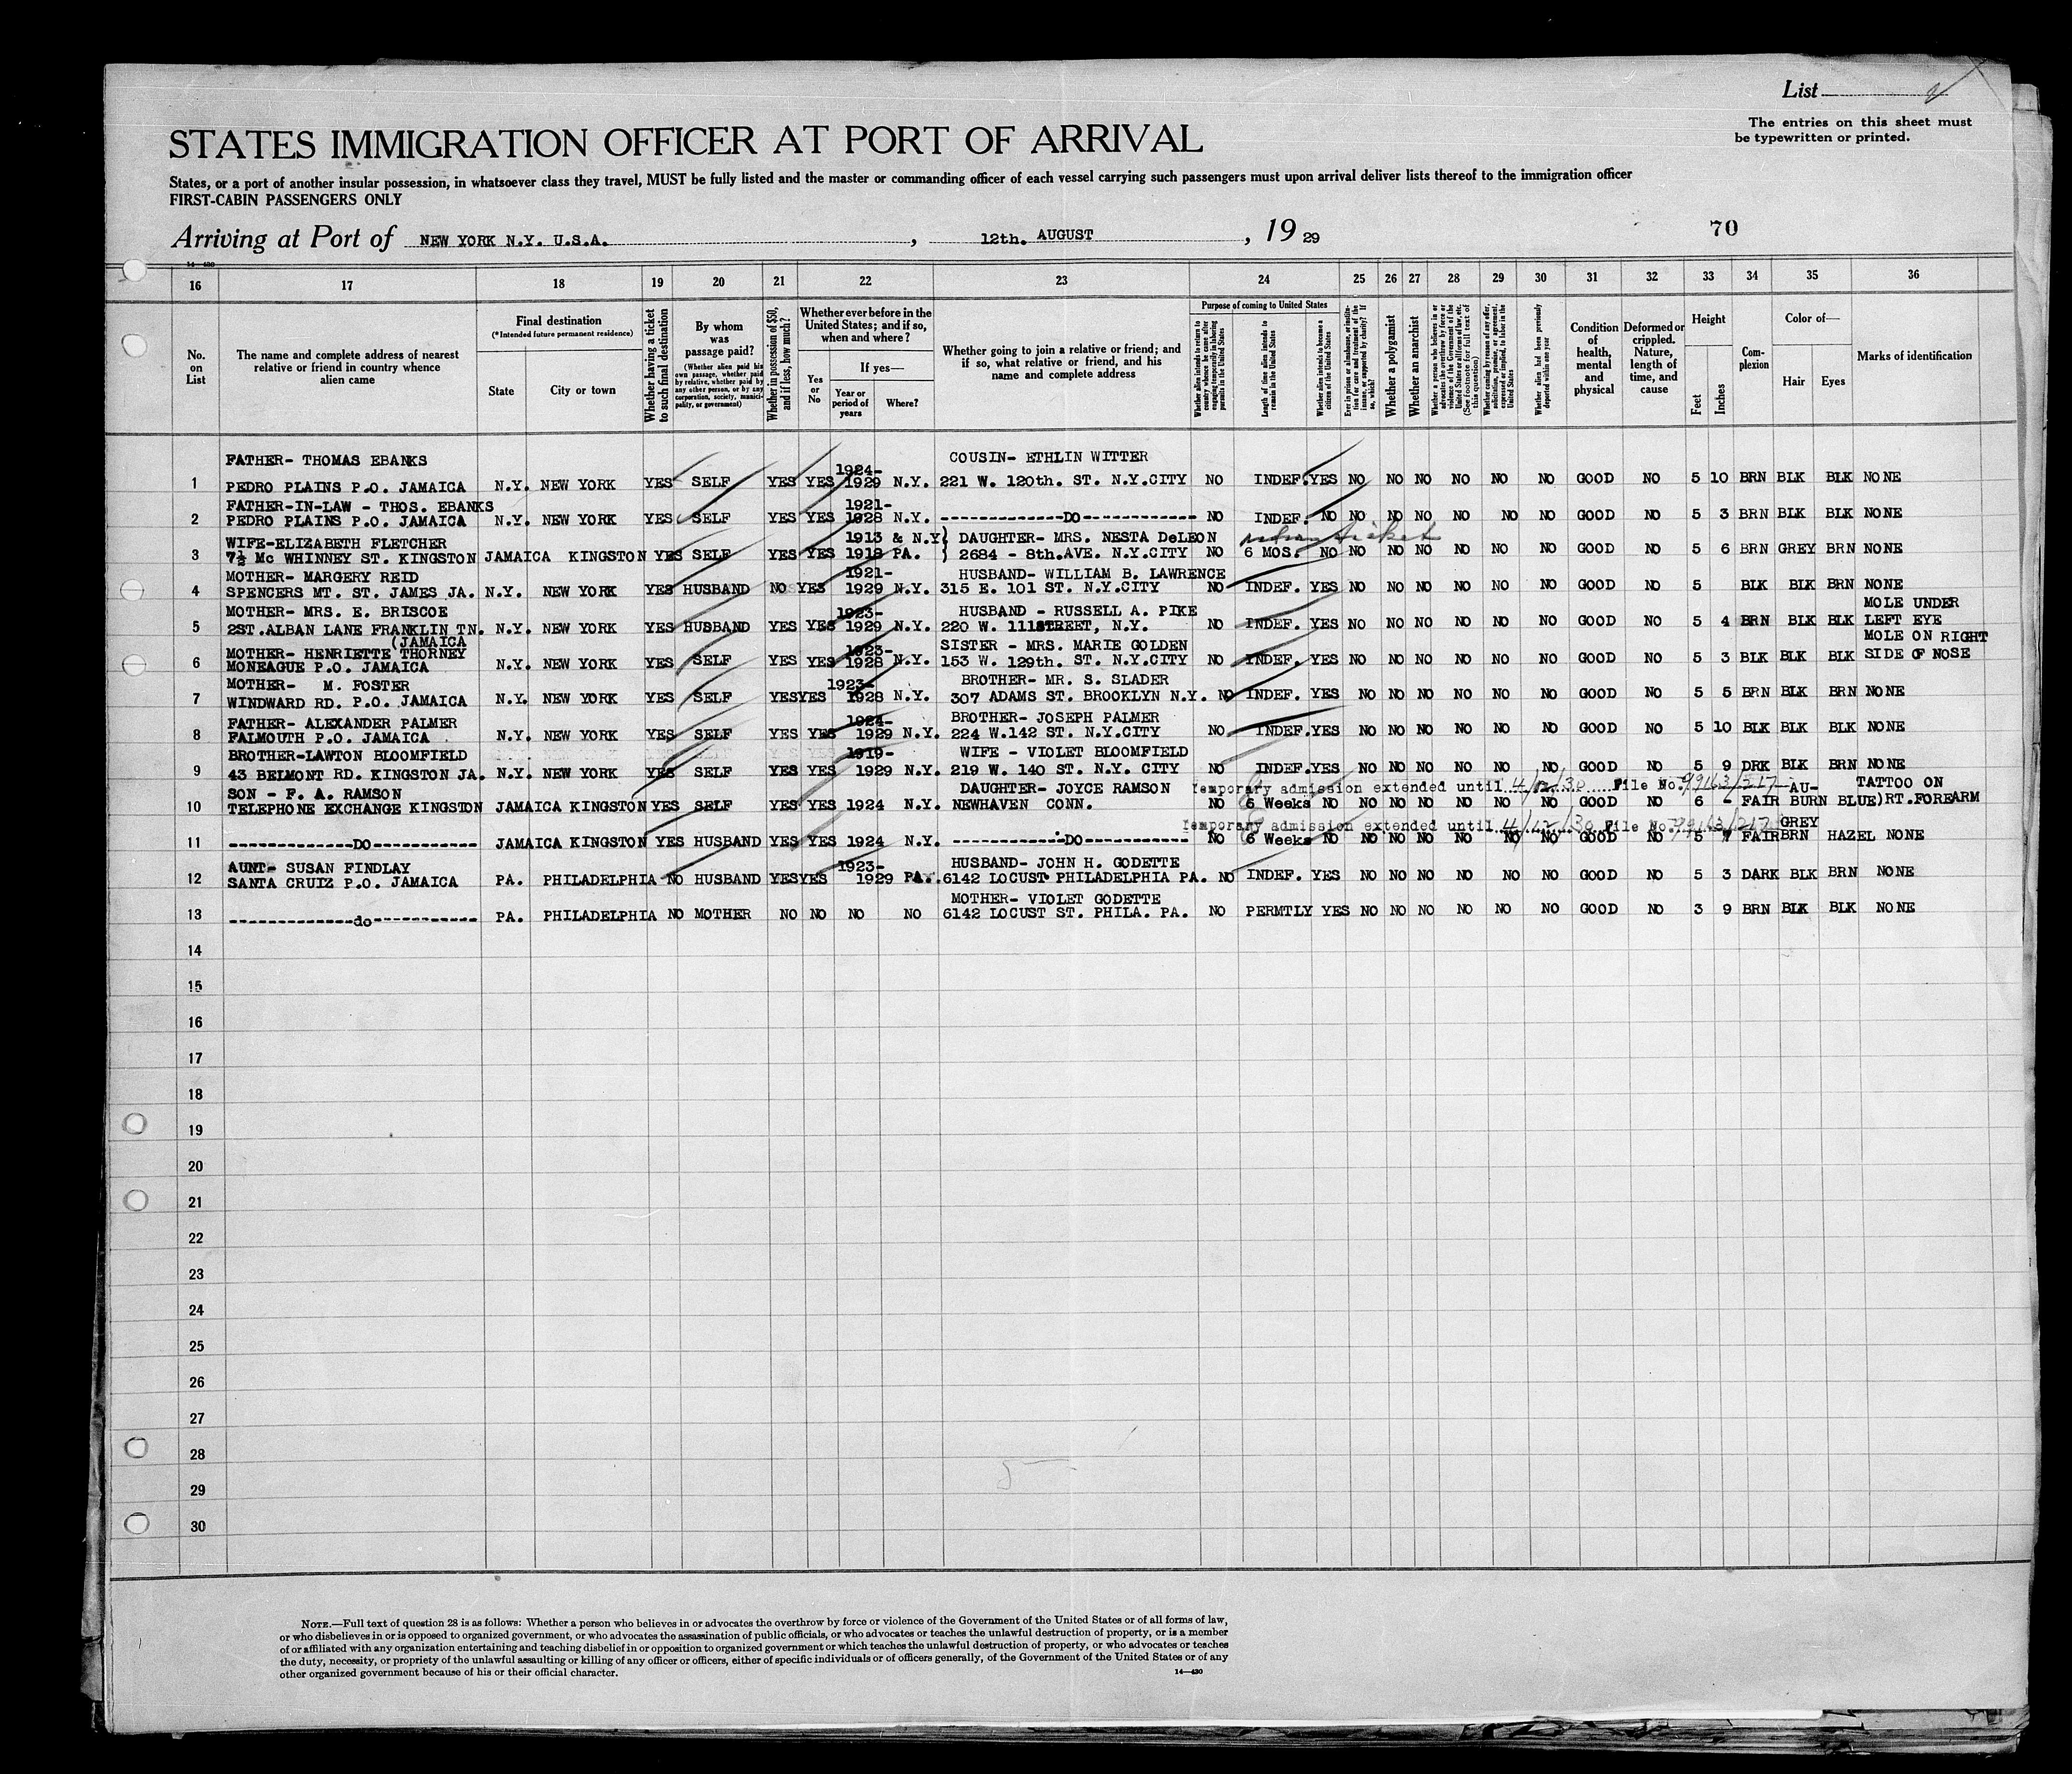 List
The entries on this sheet must
be typewritten or printed.
STATES IMMIGRATION OFFICER AT PORT OF ARRIVAL
States, or a port of another insular possession, in whatsoever class they travel, MUST be fully listed and the master or commanding officer of each vessel carrying such passengers must upon arrival deliver lists thereof to the immigration officer
FIRST-CABIN PASSENGERS ONLY
Arriving at Port of NEW YORK N.Y. U.S.A. , 12th. AUGUST , 19 29
70
14—430
16 17 18 19 20 21 22 23 24 25 26 27 28 29 30 31 32 33 34 35 36
No. on List
The name and complete address of nearest relative or friend in country whence alien came
Final destination
(*Intended future permanent residence)
State City or town
Whether having a ticket to such final destination
By whom was passage paid?
(Whether alien paid his own passage, whether paid by relative, whether paid by any other person, or by any corporation, society, municipality, or government)
Whether in possession of $50, and if less, how much?
Whether ever before in the United States; and if so, when and where?
Yes or No
If yes—
Year or period of years
Where?
Whether going to join a relative or friend; and if so, what relative or friend, and his name and complete address
Purpose of coming to United States
Whether alien intends to return to country whence he came after engaging temporarily in laboring pursuits in the United States
Length of time alien intends to remain in the United States
Whether alien intends to become a citizen of the United States
Whether a polygamist
Whether an anarchist
Whether alien had been previously deported within one year
Condition of health, mental and physical
Deformed or crippled. Nature, length of time, and cause
Height
Feet Inches
Complexion
Color of—
Hair Eyes
Marks of identification
FATHER- THOMAS EBANKS 1924- COUSIN- ETHLIN WITTER
1 PEDRO PLAINS P.O. JAMAICA N.Y. NEW YORK YES SELF YES YES 1929 N.Y. 221 W. 120th. ST. N.Y.CITY NO INDEF. YES NO NO NO NO NO NO GOOD NO 5 10 BRN BLK BLK NONE
FATHER-IN-LAW - THOS. EBANKS 1921-
2 PEDRO PLAINS P.O. JAMAICA N.Y. NEW YORK YES SELF YES YES 1928 N.Y. ------------DO------------ NO INDEF. NO NO NO NO NO NO NO GOOD NO 5 3 BRN BLK BLK NONE
WIFE-ELIZABETH FLETCHER 1913 & N.Y} DAUGHTER- MRS. NESTA DeLEON ticket
3 7½ Mc WHINNEY ST. KINGSTON JAMAICA KINGSTON YES SELF YES YES 1918 PA. } 2684 - 8th.AVE. N.Y.CITY NO 6 MOS. NO NO NO NO NO NO NO GOOD NO 5 6 BRN GREY BRN NONE
MOTHER- MARGERY REID 1921- HUSBAND- WILLIAM B. LAWRENCE
4 SPENCERS MT. ST. JAMES JA. N.Y. NEW YORK YES HUSBAND NO YES 1929 N.Y. 315 E. 101 ST. N.Y.CITY NO INDEF. YES NO NO NO NO NO NO GOOD NO 5 BLK BLK BRN NONE
MOTHER- MRS. E. BRISCOE 1923- HUSBAND - RUSSELL A. PIKE MOLE UNDER
5 2ST.ALBAN LANE FRANKLIN TN. N.Y. NEW YORK YES HUSBAND YES YES 1929 N.Y. 220 W. 111STREET, N.Y. NO INDEF. YES NO NO NO NO NO NO GOOD NO 5 4 BRN BLK BLK LEFT EYE
(JAMAICA
MOTHER- HENRIETTE THORNEY 1923- SISTER - MRS. MARIE GOLDEN MOLE ON RIGHT
6 MONEAGUE P.O. JAMAICA N.Y. NEW YORK YES SELF YES YES 1928 N.Y. 153 W. 129th. ST. N.Y.CITY NO INDEF. YES NO NO NO NO NO NO GOOD NO 5 3 BLK BLK BLK SIDE OF NOSE
MOTHER- M. FOSTER 1923- BROTHER- MR. S. SLADER
7 WINDWARD RD. P.O. JAMAICA N.Y. NEW YORK YES SELF YES YES 1928 N.Y. 307 ADAMS ST. BROOKLYN N.Y. NO INDEF. YES NO NO NO NO NO NO GOOD NO 5 5 BRN BLK BRN NONE
FATHER- ALEXANDER PALMER 1924- BROTHER- JOSEPH PALMER
8 FALMOUTH P.O. JAMAICA N.Y. NEW YORK YES SELF YES YES 1929 N.Y. 224 W.142 ST. N.Y.CITY NO INDEF. YES NO NO NO NO NO NO GOOD NO 5 10 BLK BLK BLK NONE
BROTHER-LAWTON BLOOMFIELD 1919- WIFE - VIOLET BLOOMFIELD
9 43 BELMONT RD. KINGSTON JA. N.Y. NEW YORK YES SELF YES YES 1929 N.Y. 219 W. 140 ST. N.Y. CITY NO INDEF. YES NO NO NO NO NO NO GOOD NO 5 9 DRK BLK BRN NONE
SON - F. A. RAMSON DAUGHTER- JOYCE RAMSON Temporary admission extended until 4/12/30 File No. AU- TATTOO ON
10 TELEPHONE EXCHANGE KINGSTON JAMAICA KINGSTON YES SELF YES YES 1924 N.Y. NEWHAVEN CONN. NO 6 Weeks NO NO NO NO NO NO NO GOOD NO 6 - FAIR BURN BLUE)RT.FOREARM
Temporary admission extended until 4/12/30 File No. GREY
11 -------------DO----------- JAMAICA KINGSTON YES HUSBAND YES YES 1924 N.Y. ------------DO------------ NO 6 Weeks NO NO NO NO NO NO NO GOOD NO 5 7 FAIR BRN HAZEL NONE
AUNT- SUSAN FINDLAY 1923- HUSBAND- JOHN H. GODETTE
12 SANTA CRUIZ P.O. JAMAICA PA. PHILADELPHIA NO HUSBAND YES YES 1929 PA. 6142 LOCUST PHILADELPHIA PA. NO INDEF. YES NO NO NO NO NO NO GOOD NO 5 3 DARK BLK BRN NONE
MOTHER- VIOLET GODETTE
13 -------------do----------- PA. PHILADELPHIA NO MOTHER NO NO NO NO 6142 LOCUST ST. PHILA. PA. NO PERMTLY YES NO NO NO NO NO NO GOOD NO 3 9 BRN BLK BLK NONE
14
15
16
17
18
19
20
21
22
23
24
25
26
27
28
29
30
NOTE.—Full text of question 28 is as follows: Whether a person who believes in or advocates the overthrow by force or violence of the Government of the United States or of all forms of law,
or who disbelieves in or is opposed to organized government, or who advocates the assassination of public officials, or who advocates or teaches the unlawful destruction of property, or is a member
of or affiliated with any organization entertaining and teaching disbelief in or opposition to organized government or which teaches the unlawful destruction of property, or who advocates or teaches
the duty, necessity, or propriety of the unlawful assaulting or killing of any officer or officers, either of specific individuals or of officers generally, of the Government of the United States or of any
other organized government because of his or their official character.
14—430